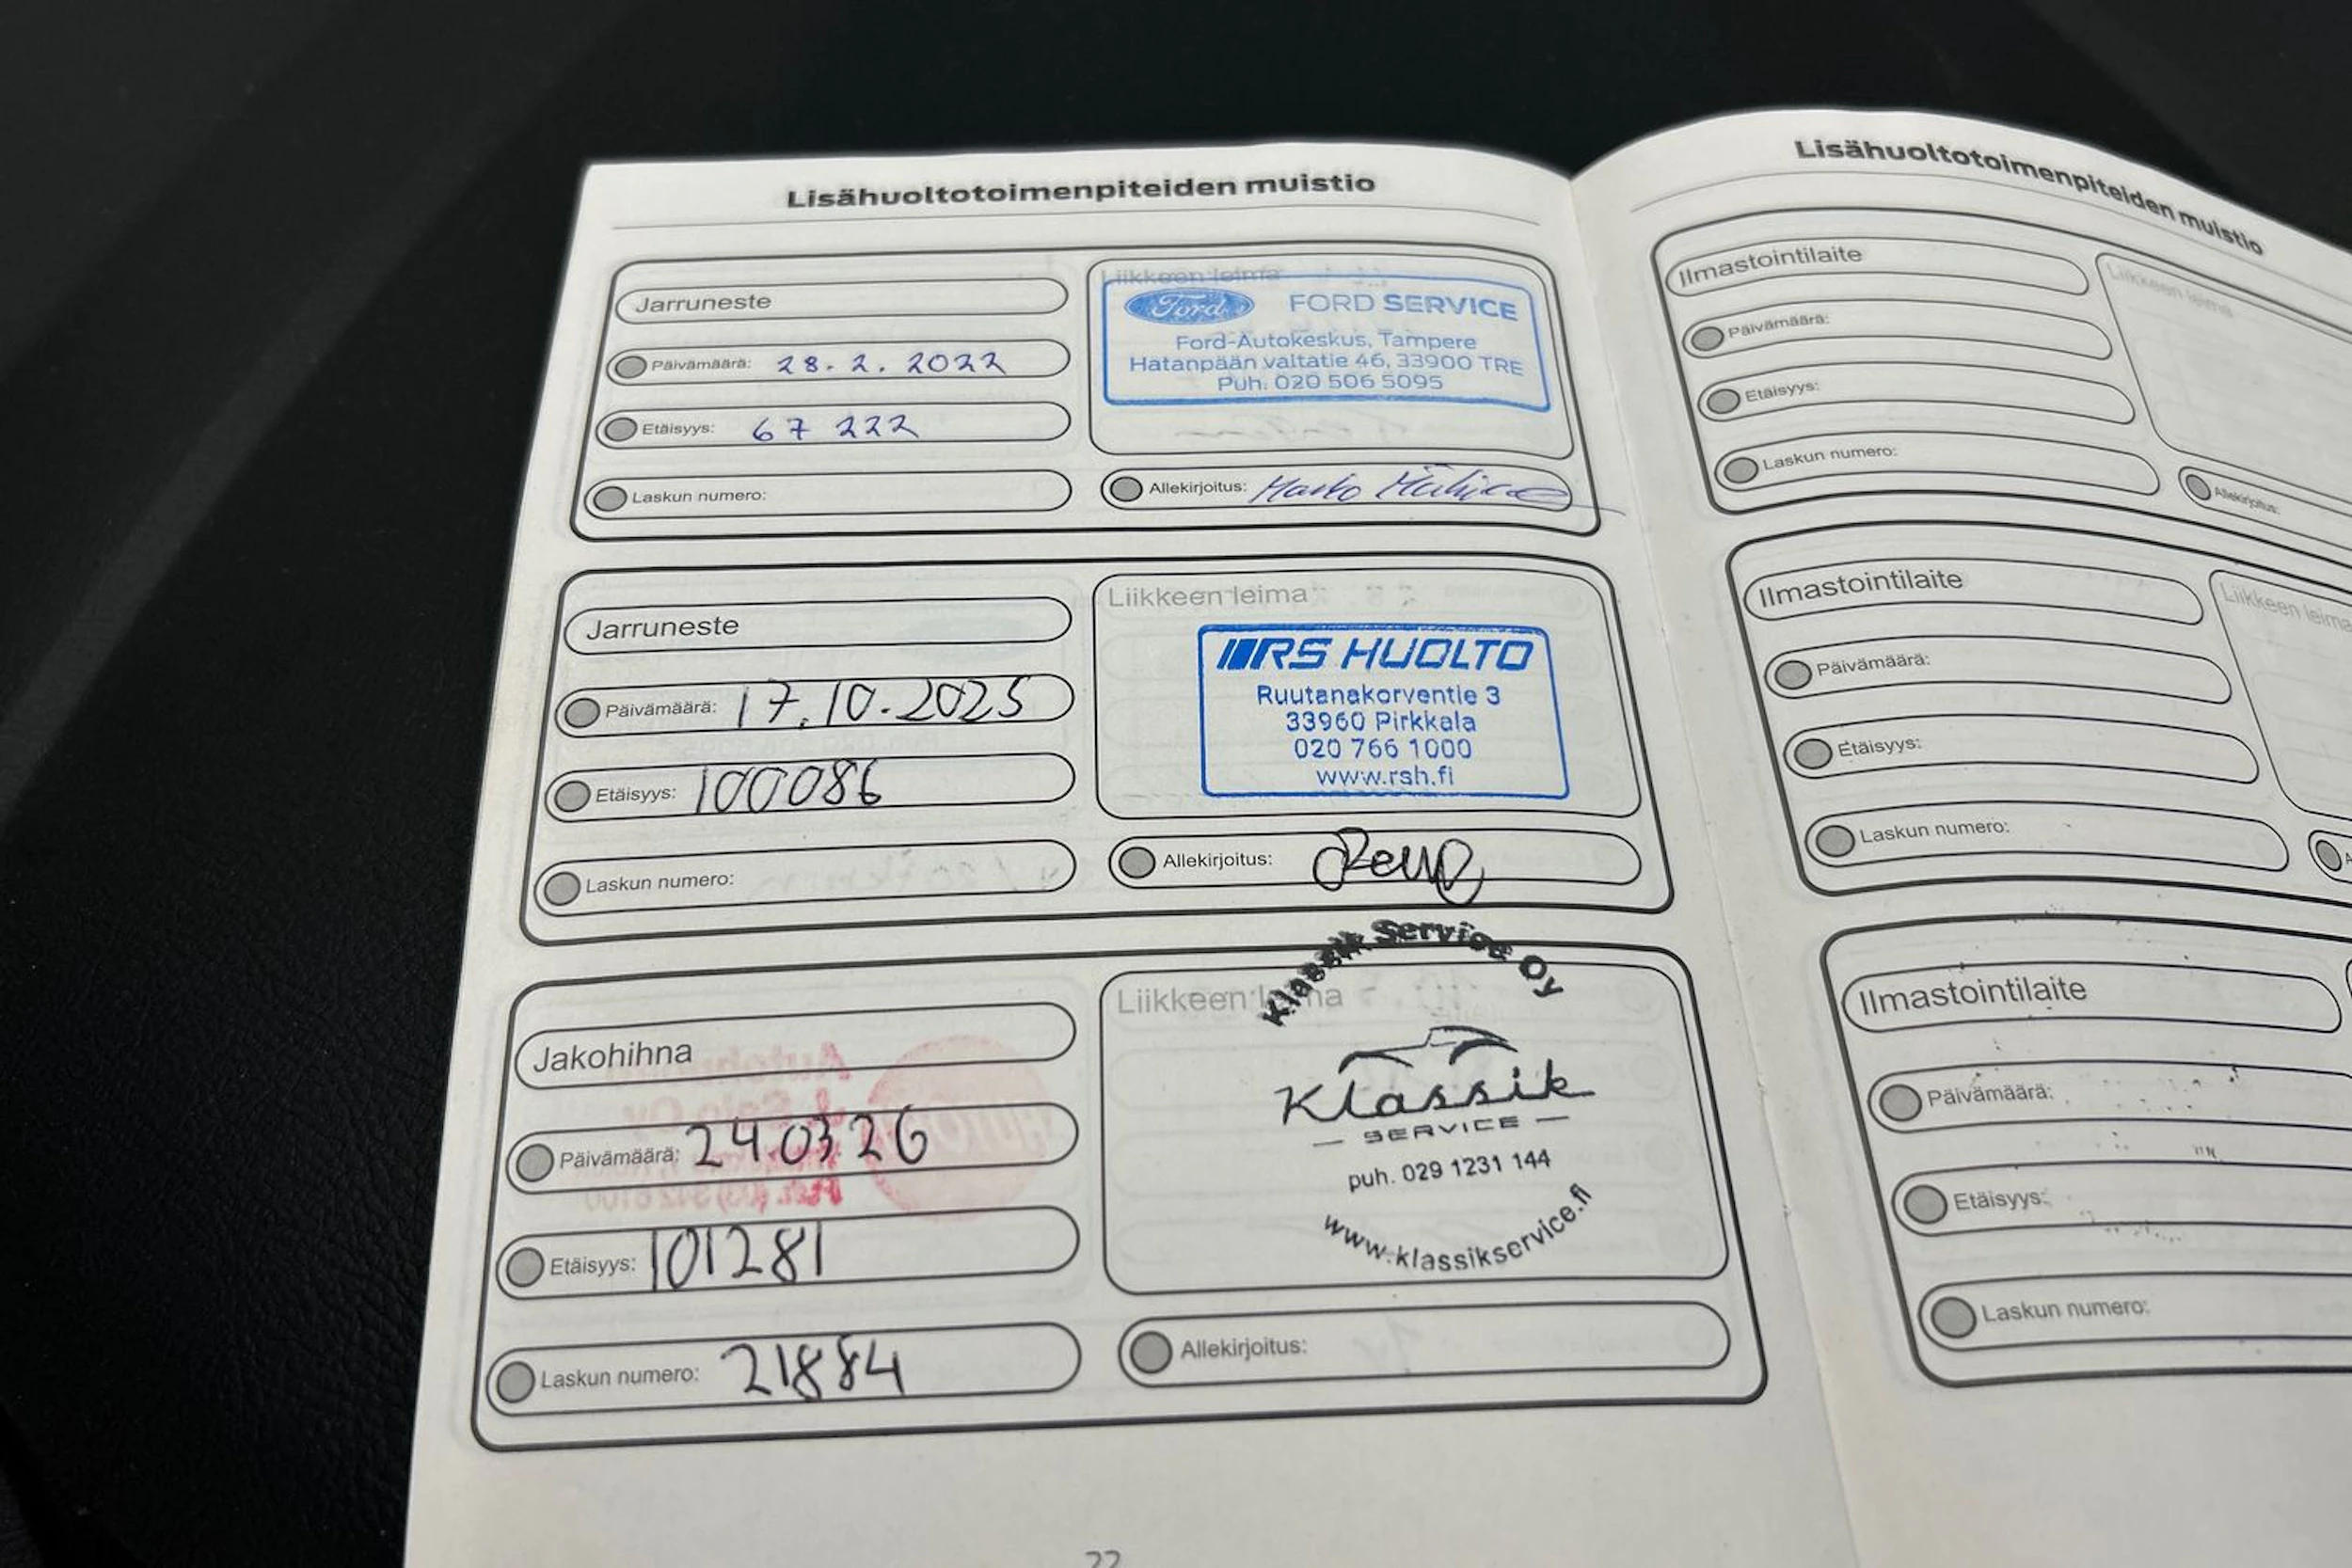 Lisähuoltotoimenpiteiden muistio
Jarruneste
Päivämäärä: 28.2.2022
Etäisyys: 67 222
Laskun numero:
Liikkeen leima
Ford FORD SERVICE
Ford-Autokeskus, Tampere
Hatanpään valtatie 46, 33900 TRE
Puh. 020 506 5095
Allekirjoitus: Marko
Jarruneste
Päivämäärä: 17.10.2025
Etäisyys: 100086
Laskun numero:
Liikkeen leima
RS HUOLTO
Ruutanakorventie 3
33960 Pirkkala
020 766 1000
www.rsh.fi
Allekirjoitus:
Jakohihna
Päivämäärä: 240326
Etäisyys: 101281
Laskun numero: 21884
Liikkeen leima
Klassik Service Oy
Klassik
SERVICE
puh. 029 1231 144
www.klassikservice.fi
Allekirjoitus:
Lisähuoltotoimenpiteiden muistio
Ilmastointilaite
Päivämäärä:
Etäisyys:
Laskun numero:
Liikkeen leima
Allekirjoitus:
Ilmastointilaite
Päivämäärä:
Etäisyys:
Laskun numero:
Liikkeen leima
Ilmastointilaite
Päivämäärä:
Etäisyys:
Laskun numero: